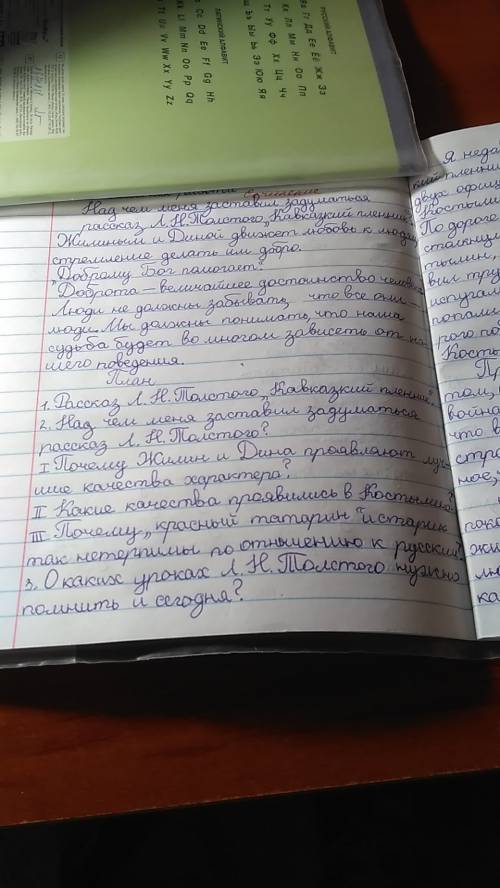 РУССКИЙ АЛФАВИТ
Гг Дд Ее Ёё Жж Зз
Кк Лл Мм Нн Оо Пп
Тт Уу Фф Хх Цц Чч
Щ Ъъ Ыы Ьь Ээ Юю Яя
ЛАТИНСКИЙ АЛФАВИТ
Cc Dd Ee Ff Gg Hh
Kk Ll Mm Nn Oo Pp Qq
Tt Uu Vv Ww Xx Yy Zz
Сочинение
Над чем меня заставил задуматься
рассказ Л. Н. Толстого „Кавказкий пленник
Жилиным и Диной движет любовь к людям
стремление делать им добро.
„Доброму Бог помогает".
Доброта — величайшее достоинство челове
Люди не должны забывать, что все они —
люди. Мы должны понимать, что наша
судьба будет во многом зависеть от на
шего поведения.
План
1. Рассказ Л. Н. Толстого „Кавказкий пленник".
2. Над чем меня заставил задуматься
рассказ Л. Н. Толстого?
I Почему Жилин и Дина проявляют луч
шие качества характера?
II Какие качества проявились в Костылине?
III Почему „красный татарин" и старик
так нетерпимы по отношению к русским?
3. О каких уроках Л. Н. Толстого нужно
помнить и сегодня?
Я неда
кий пленни
двух офиц
Костыли
По дороге
столкну
тылин,
вил тру
испугал
попали
рого по
Кость
Пр
том,
войно
что в
стра
ное,
пока
жи
лю
ка